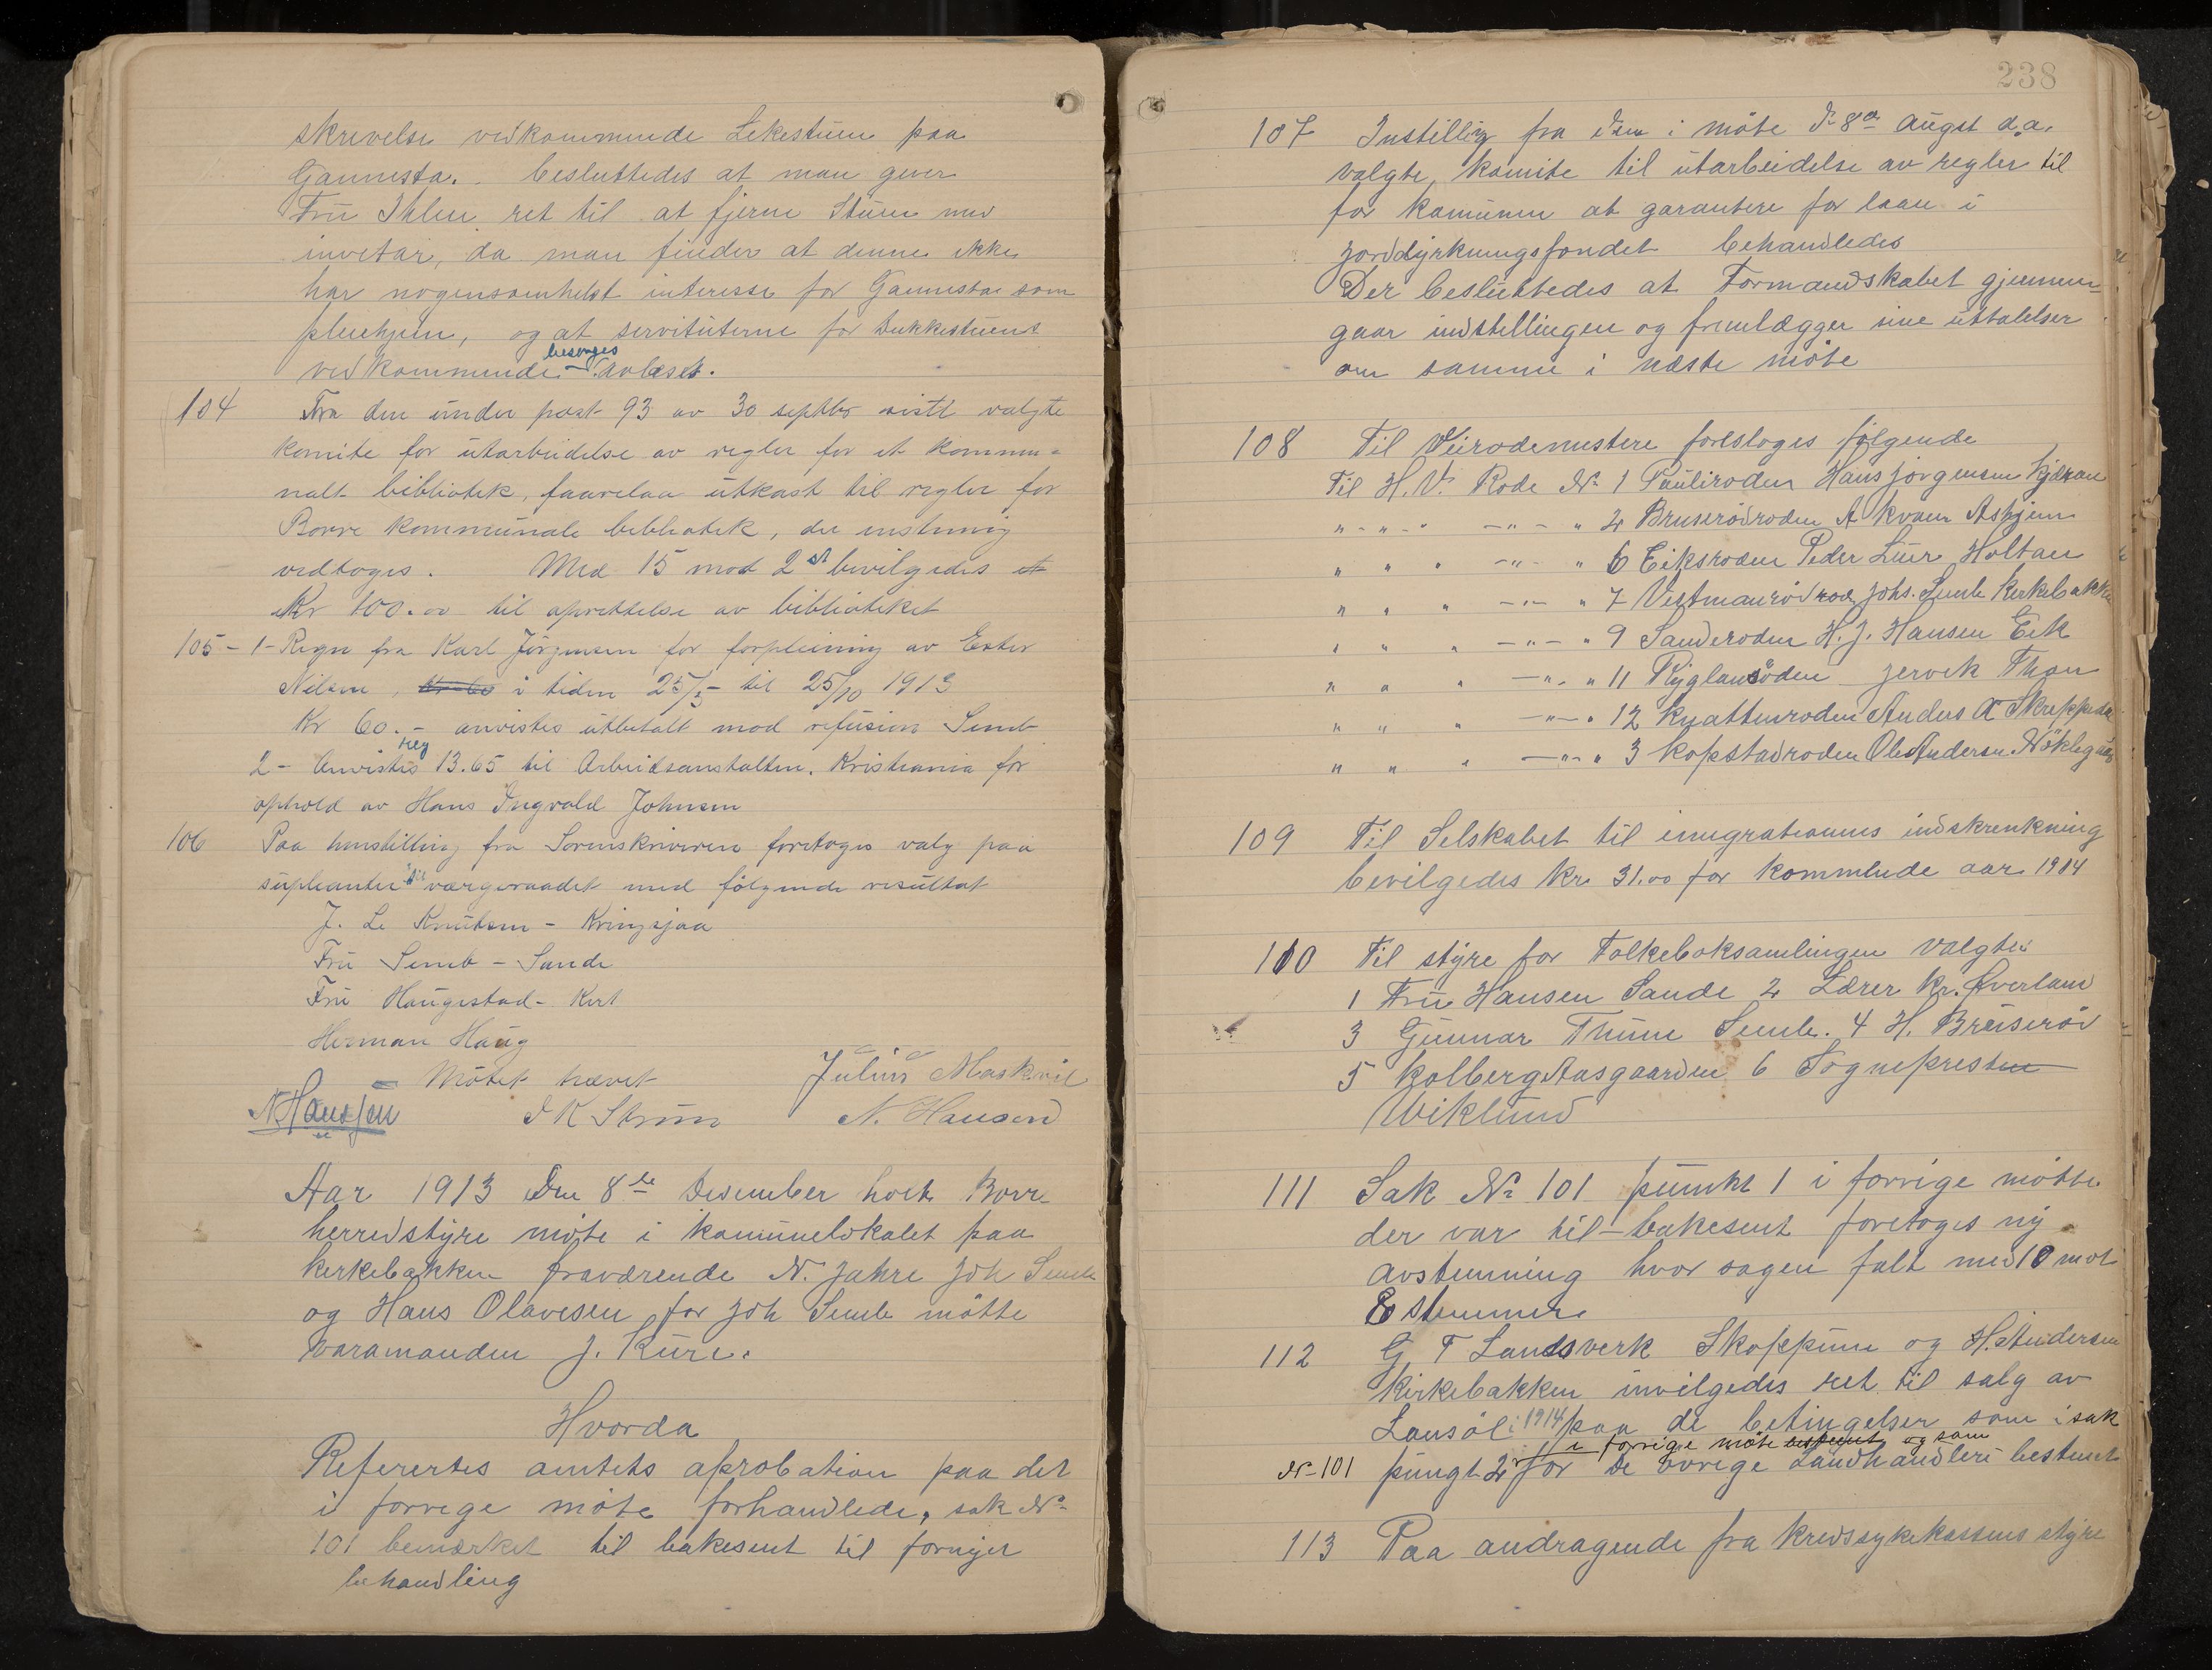 skrivelse vedkommende Lekestuen paa
Gannestad. besluttedes at man giver
Fru Ihlen ret til at fjerne Stuen med
invetar, da man finder at denne ikke
har nogensomhelst interesse for Gannestad som
pleiehjem, og at servituterne for Dukkestuens
vedkommende besørges avløset.
104 Fra den under post 93 av 30 septbr sistl valgte
komite for utarbeidelse av regler for et kommu-
nalt bibliotek, faarelaa utkast til regler for
Borre kommunale bibliotek, der enstemig
vedtoges. Med 15 mod 2 st bevilgedes et
Kr 100.00 til oprettelse av biblioteket
105 - 1 - Regn fra Karl Jörgensen for forpleining av Ester
Nilsen, i tiden 25/5 - til 25/10 1913
Kr 60.- anvistes utbetalt mod refusion Semb
2 - Anvistes reg 13.65 til Arbeidsanstalten, Kristiania for
ophold av Hans Ingvald Johnsen
106 Paa henstilling fra Sorenskriveren foretoges valg paa
supleanter til værgeraadet med fölgende resultat
J. L. Knutsen - Kringsjaa
Fru Semb - Sande
Fru Haugestad - Kirt
Herman Haug
Mötet hævet Julius Maskvil
N Hanssen I K Strøm N. Hansen
Aar 1913 Den 8de Desember holt Borre
herredstyre möte i komunelokalet paa
kirkebakken fraværende N. Jahre Joh Semb
og Hans Olavesen for Joh Semb mötte
Varamanden J. Kure.
Hvorda
Referertes amtets aprobation paa det
i forrege möte forhandlede, sak No
101 bemærket til bakesent til fornyet
behandling
238
107 Instilling fra den i möte d 8de Augst d.a.
valgte komite til utarbeidelse av regler til
for komunen at garantere for laan i
jorddyrkningsfondet behandledes
Der besluttedes at Formandskabet gjennem-
gaar indstillingen og fremlægger sine uttalelser
om samme i næste möte
108 Til Veirodemestere foresloges følgende
Til H.V. Rode No 1 Pauliroden Hans Jörgensen Kjæran
" - " - " - " - " 2 Bruserödroden A Kvam Askjem
" " " - " - " 6 Eiksroden Peder Lur Holtan
" " " - " - " 7 Vestmanrödrod Johs. Semb Kirkebakke
" " " - " - " 9 Sanderoden H. J. Hansen Eek
" " " - " - " 11 Ryglansöden Jervek Than
" " " - " - " 12 Knattenroden Anders A Skreppeda
" " " - " - " 3 Kopstadroden Ole Andersen Nöklegaar
109 Til Selskabet til emigrationens indskrenkning
bevilgedes Kr. 31.00 for kommende aar 1914
110 Til styre for Folkeboksamlingen valgtes
1 Fru Hansen Sande 2 Lærer Kr. Överland
3 Gunnar Thune Semb. 4 H. Bruseröd
5 Kolberg Aasgaarden 6 Sognepresten
Wiklund
111 Sak No 101 punkt 1 i forrige mötte
der var til-bakesent foretoges ny
avstemning hvor sagen falt med 10 mot
8 stemmer
112 G T Landsverk Skoppum og H. Andersen
Kirkebakken invilgedes ret til salg av
Landsöl i 1914 paa de betingelser som i sak
i forrige möte bestemt og som
No 101 pungt 2 for de övrige Landhandleri bestemt
113 Paa andragende fra kredssykekassens styre